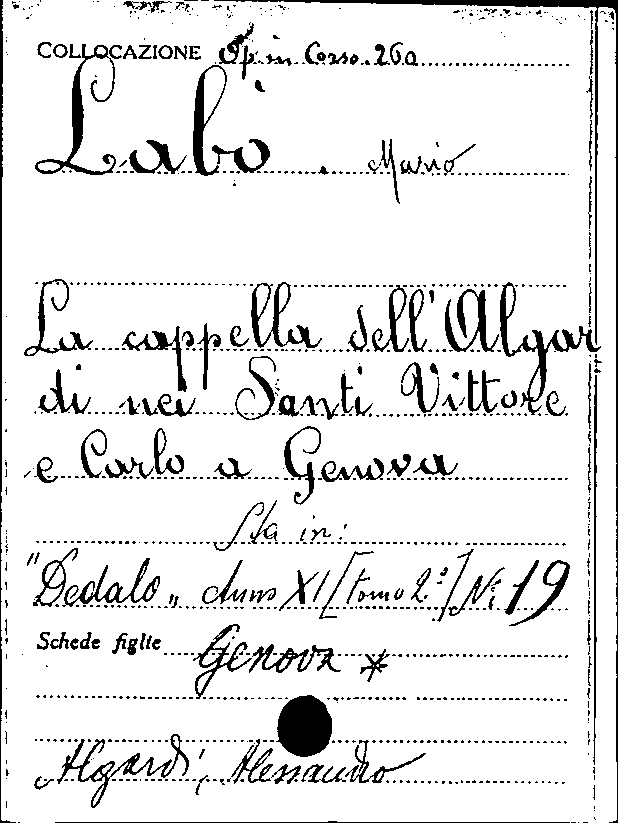 COLLOCAZIONE Op. in Corso. 260
Labò. Mario
La cappella dell'Algar
di nei Santi Vittore
e Carlo a Genova
Sta in:
"Dedalo„ Anno XI [tomo 2º] N: 19
Schede figlie Genova *
Algardi, Alessandro